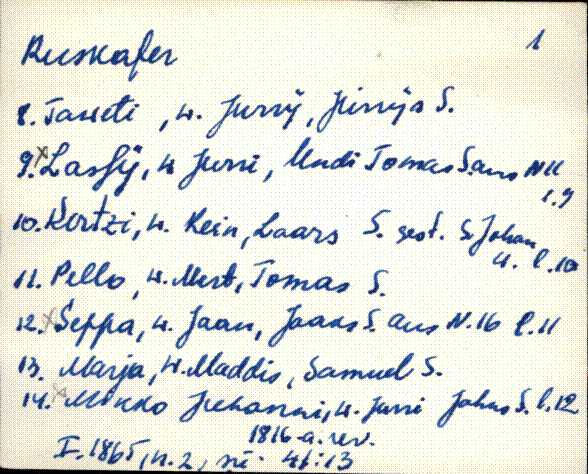 1
Ruskafer
8. Taweti, w. Jurry, Hinrijs S.
9. x Lassij, w Jurri, Undi Tomas S. aus N 11
l. 9
10. Kertzi, w. Rein, Laars S. gest. S. Johan
w. l. 10
11. Pello, w. Mert, Tomas S.
12. x Seppa, w. Jaan, Jaaks S. aus N. 16 l. 11
13. Marja, w. Maddis, Samuel S.
14. x Mikko Juhanni, w. Jurri Johns S. l. 12
1816 a. rev.
I. 1865, n. 2, si. 41:13